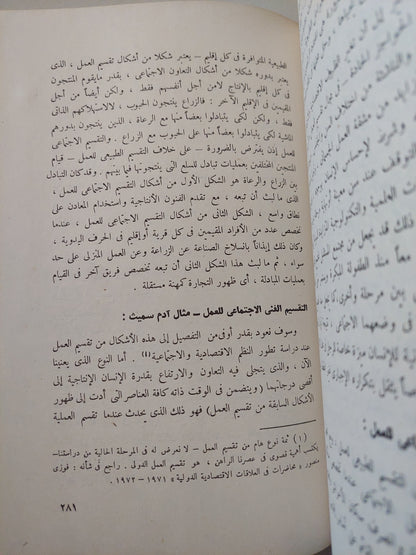 الطبيعية المتوافرة فى كل إقليم – يعتبر شكلا من أشكال تقسيم العمل ، الذى
يعتبر بدوره شكلا من أشكال التعاون الاجتماعى ، بقدر مايقوم المنتجون
المقيمين فى إقليم بالإنتاج لامن أجل أنفسهم فقط ، ولكن أيضاً من أجل
المقيمين فى الإقليم الآخر : فالزراع ينتجون الحبوب ، لالاستهلاكهم الذاتى
فقط ، ولكن لكى يتبادلوا بعضاً منها مع الرعاة ، الذين ينتجون بدورهم
الماشية لكى يتبادلوا بعضاً منها على الحبوب مع الزراع . والتقسيم الاجتماعى
للعمل إذن يفترض بالضرورة – على خلاف التقسيم الطبيعى للعمل – قيام
المنتجين المختلفين بعمليات تبادل للسلع التى ينتجونها فيما بينهم . وقد كان التبادل
بين الزراع والرعاة هو الشكل الأول من أشكال التقسيم الاجتماعى للعمل ،
الذى ما لبث أن تبعه ، مع تقدم الفنون الأنتاجية واستخدام المعادن على
نطاق واسع ، الشكل الثانى من أشكال التقسيم الاجتماعى للعمل ، عندما
تخصص عدد من الأفراد المقيمين فى كل قرية أو إقليم فى الحرف اليدوية ،
وكان ذلك إيذاناً بانسلاخ الصناعة عن الزراعة وعن العمل المنزلى على حد
سواء ، ثم ما لبث هذا الشكل الثانى أن تبعه تخصص فريق آخر فى القيام
بعمليات المبادلة ، أى ظهور التجارة كمهنة مستقلة .
التقسيم الفنى الاجتماعى للعمل – مثال آدم سميث :
وسوف نعود بقدر أوفى من التفصيل إلى هذه الأشكال من تقسيم العمل
عند دراسة تطور النظم الاقتصادية والاجتماعية (١) . أما النوع الذى يعنينا
الآن ، والذى يتجلى فيه التعاون والارتفاع بقدرة الإنسان الإنتاجية إلى
أقصى درجاتهما (ويتضمن فى الوقت ذاته كافة العناصر التى أدت إلى ظهور
الأشكال السابقة من تقسيم العمل) فهو ذلك الذى يحدث عندما تقسم العملية
(١) ثمة نوع هام من تقسيم العمل – لا نعرض له فى المرحلة الحالية من دراستنا–
يكتسب أهمية قصوى فى عصرنا الراهن ، هو تقسيم العمل الدولى . راجع فى شأنه : فوزى
منصور ، محاضرات فى العلاقات الاقتصادية الدولية ، ١٩٧١ – ١٩٧٢ .
٢٨١